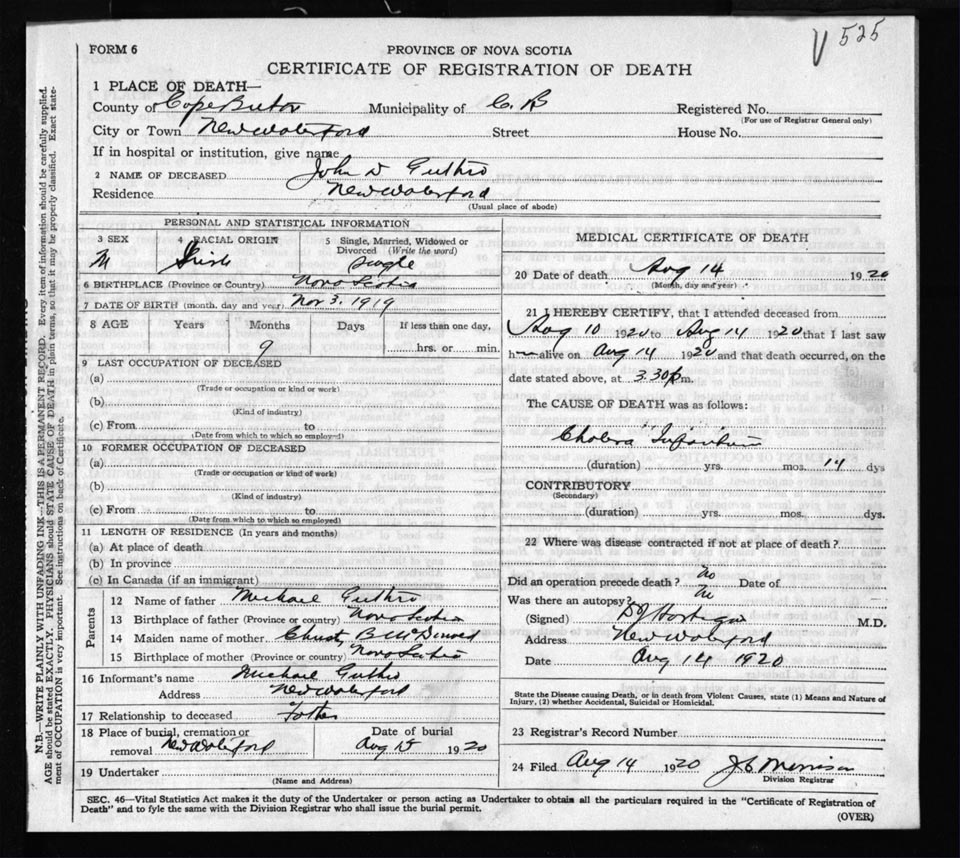 V 525
FORM 6
PROVINCE OF NOVA SCOTIA
CERTIFICATE OF REGISTRATION OF DEATH
1 PLACE OF DEATH—
County of Cape Breton Municipality of C. B Registered No.
(For use of Registrar General only)
City or Town New Waterford Street House No.
If in hospital or institution, give name
2 NAME OF DECEASED John D Guthro
Residence New Waterford
(Usual place of abode)
PERSONAL AND STATISTICAL INFORMATION
3 SEX 4 RACIAL ORIGIN 5 Single, Married, Widowed or Divorced (Write the word)
M Irish Single
6 BIRTHPLACE (Province or Country) Nova Scotia
7 DATE OF BIRTH (month, day and year) Nov 3. 1919
8 AGE Years Months Days If less than one day,
9 hrs. or min.
9 LAST OCCUPATION OF DECEASED
(a)
(Trade or occupation or kind of work)
(b)
(Kind of industry)
(c) From to
(Date from which to which so employed)
10 FORMER OCCUPATION OF DECEASED
(a)
(Trade or occupation or kind of work)
(b)
(Kind of industry)
(c) From to
(Date from which to which so employed)
11 LENGTH OF RESIDENCE (In years and months)
(a) At place of death
(b) In province
(c) In Canada (if an immigrant)
Parents
12 Name of father Michael Guthro
13 Birthplace of father (Province or country) Nova Scotia
14 Maiden name of mother McDonald
15 Birthplace of mother (Province or country) Nova Scotia
16 Informant's name Michael Guthro
Address New Waterford
17 Relationship to deceased Father
18 Place of burial, cremation or Date of burial
removal New Waterford Aug 15 1920
19 Undertaker
(Name and Address)
MEDICAL CERTIFICATE OF DEATH
20 Date of death Aug 14 1920
(Month, day and year)
21 I HEREBY CERTIFY, that I attended deceased from
Aug 10 1920 to Aug 14 1920 that I last saw
him alive on Aug 14 1920 and that death occurred, on the
date stated above, at 3.30 p m.
The CAUSE OF DEATH was as follows:
Cholera Infantum
(duration) yrs. mos. 14 dys
CONTRIBUTORY
(Secondary)
(duration) yrs. mos. dys.
22 Where was disease contracted if not at place of death?
Did an operation precede death? No Date of
Was there an autopsy? No
(Signed) M.D.
Address New Waterford
Date Aug 14 1920
State the Disease causing Death, or in death from Violent Causes, state (1) Means and Nature of
Injury, (2) whether Accidental, Suicidal or Homicidal.
23 Registrar's Record Number
24 Filed Aug 14 1920 J C Morrison
Division Registrar
SEC. 46—Vital Statistics Act makes it the duty of the Undertaker or person acting as Undertaker to obtain all the particulars required in the "Certificate of Registration of
Death" and to fyle the same with the Division Registrar who shall issue the burial permit.
(OVER)
N.B.—WRITE PLAINLY WITH UNFADING INK—THIS IS A PERMANENT RECORD. Every item of information should be carefully supplied.
AGE should be stated EXACTLY. PHYSICIANS should STATE CAUSE OF DEATH in plain terms, so that it may be properly classified. Exact state-
ment of OCCUPATION is very important. See instructions on back of Certificate.